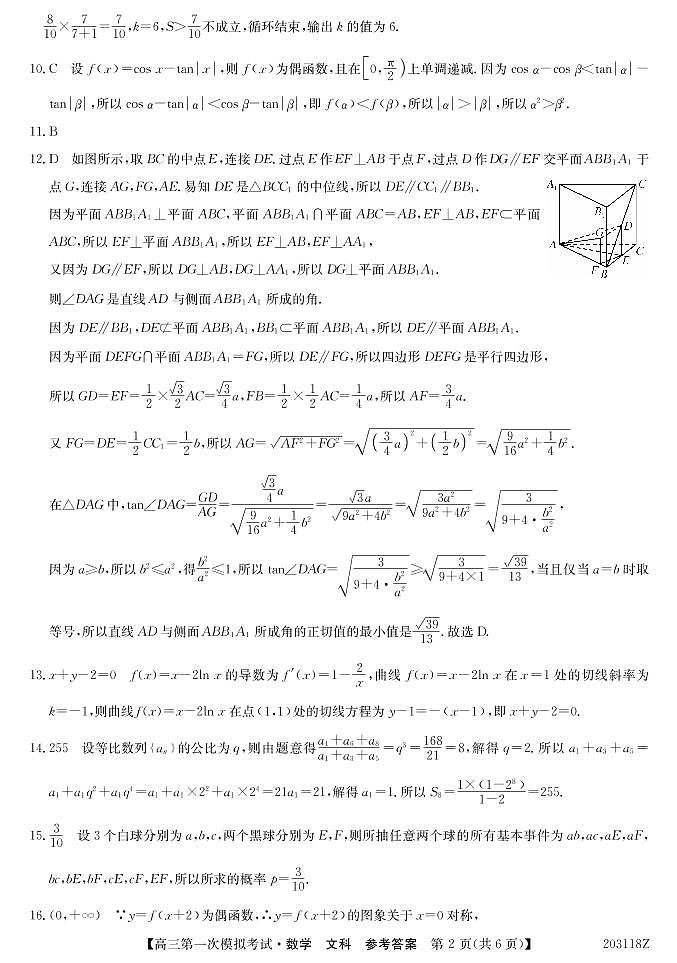 8/10×7/(7+1)=7/10,k=6,S>7/10不成立,循环结束,输出 k 的值为 6.
10. C 设 f(x)=cos x-tan|x|,则 f(x)为偶函数,且在[0,π/2)上单调递减.因为 cos α-cos β<tan|α|-
tan|β|,所以 cos α-tan|α|<cos β-tan|β|,即 f(α)<f(β),所以|α|>|β|,所以 α²>β².
11. B
12. D 如图所示,取 BC 的中点 E,连接 DE.过点 E 作 EF⊥AB 于点 F,过点 D 作 DG∥EF 交平面 ABB₁A₁ 于
点 G,连接 AG,FG,AE.易知 DE 是△BCC₁ 的中位线,所以 DE∥CC₁∥BB₁.
因为平面 ABB₁A₁⊥平面 ABC,平面 ABB₁A₁∩平面 ABC=AB,EF⊥AB,EF⊂平面
ABC,所以 EF⊥平面 ABB₁A₁,所以 EF⊥AB,EF⊥AA₁,
又因为 DG∥EF,所以 DG⊥AB,DG⊥AA₁,所以 DG⊥平面 ABB₁A₁.
则∠DAG 是直线 AD 与侧面 ABB₁A₁ 所成的角.
因为 DE∥BB₁,DE⊄平面 ABB₁A₁,BB₁⊂平面 ABB₁A₁,所以 DE∥平面 ABB₁A₁.
因为平面 DEFG∩平面 ABB₁A₁=FG,所以 DE∥FG,所以四边形 DEFG 是平行四边形,
所以 GD=EF=1/2×√3/2 AC=√3/4 a,FB=1/2×1/2 AC=1/4 a,所以 AF=3/4 a.
又 FG=DE=1/2 CC₁=1/2 b,所以 AG=√(AF²+FG²)=√((3/4 a)²+(1/2 b)²)=√(9/16 a²+1/4 b²).
在△DAG 中,tan∠DAG=GD/AG=(√3/4 a)/√(9/16 a²+1/4 b²)=√3a/√(9a²+4b²)=√(3a²/(9a²+4b²))=√(3/(9+4·b²/a²)),
因为 a≥b,所以 b²≤a²,得 b²/a²≤1,所以 tan∠DAG=√(3/(9+4·b²/a²))≥√(3/(9+4×1))=√39/13,当且仅当 a=b 时取
等号,所以直线 AD 与侧面 ABB₁A₁ 所成角的正切值的最小值是√39/13.故选 D.
A₁
C
B
D
G
A
C
F
E
B
13. x+y-2=0 f(x)=x-2ln x 的导数为 f′(x)=1-2/x,曲线 f(x)=x-2ln x 在 x=1 处的切线斜率为
k=-1,则曲线 f(x)=x-2ln x 在点(1,1)处的切线方程为 y-1=-(x-1),即 x+y-2=0.
14. 255 设等比数列{aₙ}的公比为 q,则由题意得(a₄+a₆+a₈)/(a₁+a₃+a₅)=q³=168/21=8,解得 q=2.所以 a₁+a₃+a₅=
a₁+a₁q²+a₁q⁴=a₁+a₁×2²+a₁×2⁴=21a₁=21,解得 a₁=1.所以 S₈=1×(1-2⁸)/(1-2)=255.
15. 3/10 设 3 个白球分别为 a,b,c,两个黑球分别为 E,F,则所抽任意两个球的所有基本事件为 ab,ac,aE,aF,
bc,bE,bF,cE,cF,EF,所以所求的概率 p=3/10.
16. (0,+∞) ∵y=f(x+2)为偶函数,∴y=f(x+2)的图象关于 x=0 对称,
【高三第一次模拟考试·数学 文科 参考答案 第 2 页(共 6 页)】
203118Z